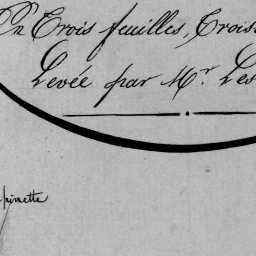 En Trois feuilles, Trois
Levée par Mr. Les
pinette